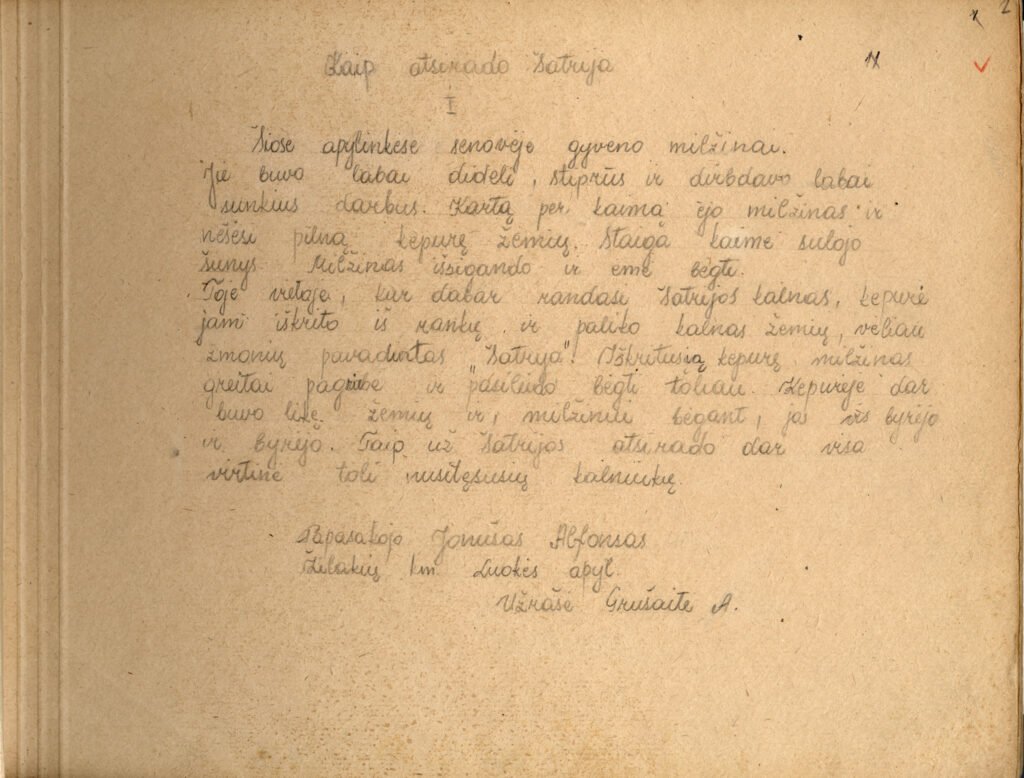 2
Kaip atsirado Šatrija
I
Šiose apylinkėse senovėje gyveno milžinai.
Jie buvo labai dideli, stiprūs ir dirbdavo labai
sunkius darbus. Kartą per kaimą ėjo milžinas ir
nešėsi pilną kepurę žemių. Staiga kaime sulojo
šunys. Milžinas išsigando ir ėmė bėgti.
Toje vietoje, kur dabar randasi Šatrijos kalnas, kepurė
jam iškrito iš rankų ir paliko kalnas žemių, vėliau
žmonių pavadintas „Šatrija". Iškritusią kepurę milžinas
greitai pagriebė ir pasileido bėgti toliau. Kepurėje dar
buvo likę žemių ir, milžinui bėgant, jos vis byrėjo
ir byrėjo. Taip už Šatrijos atsirado dar visa
virtinė toli nusitęsusių kalniukų.
Papasakojo Jonušas Alfonsas
Žilakių km. Luokės apyl.
Užrašė Grušaitė A.